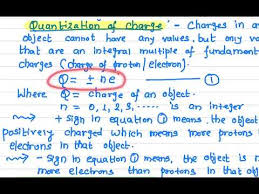 Quantization of charge :- Charges in an
object cannot have any values. but only va
that are an integral multiple of fundament
charges (charge of proton/electron).
Q = ± n e ①
Where Q = charge of an object.
n = 0, 1, 2, 3, ...... is an integer
+ sign in equation ① means. the object
positively charged which means more protons t
electrons in that object.
- sign in equation ① means, the object is n
more electrons than protons in that ob